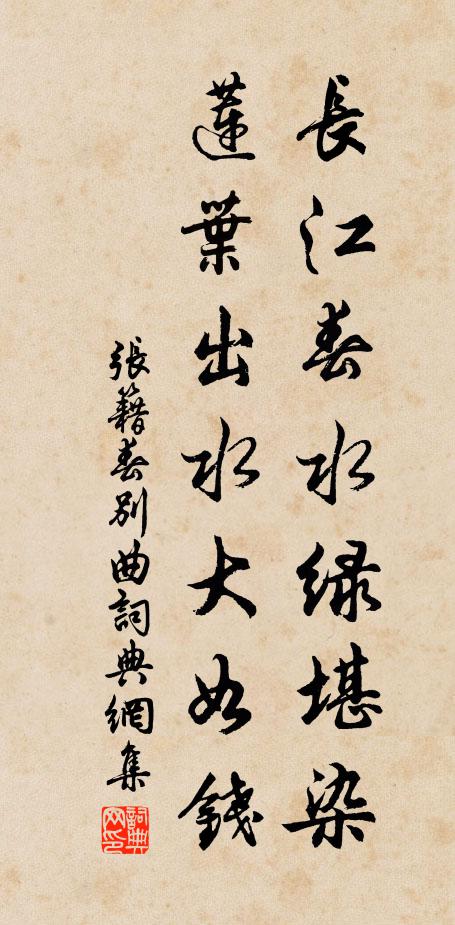 長江春水绿堪染
蓮葉出水大如錢
張籍春別曲詞典網集
詞典网印